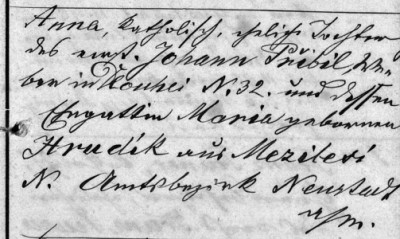 Anna, katholisch, eheliche Tochter
des verst. Johann Přibil, We-
ber in N. 32. und dessen
Ehegattin Maria geborenen
Hrudík aus Mezilesí
N. Amtsbezirk Neustadt
a/m.